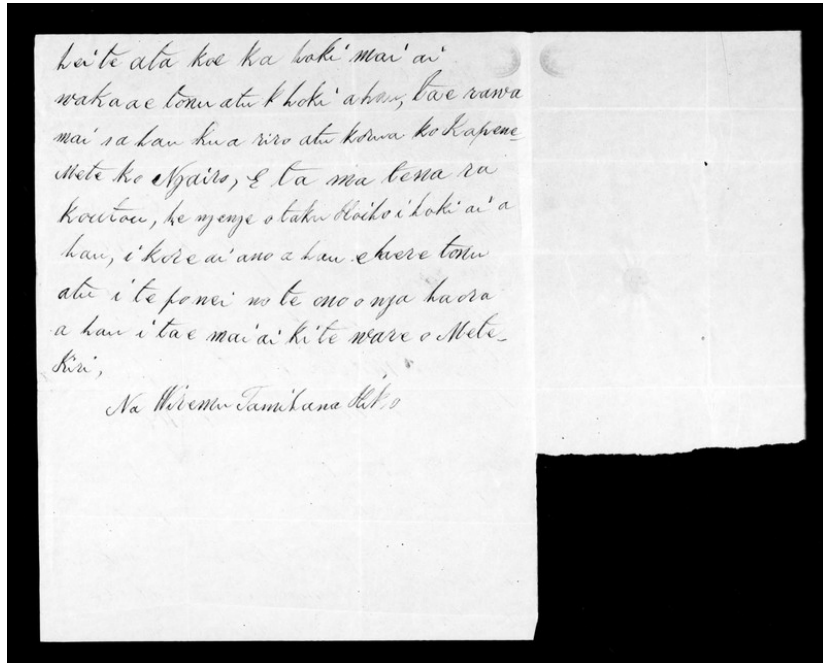 hei te ata koe ka hoki mai ai
wakaae tonu atu k hoki ahau, tae rawa
mai sa hau kua riro atu korua ko Kapene
Mete ko Ngairo, E ta ma tena ra
koutou, he ngenge o taku Hoiho i hoki ai a
hau, i kore ai ano a hau e haere tonu
atu i te po nei no te ono o nga haora
a hau i tae mai ai ki te ware o Mete-
Kiri,
Na Wiremu Tamihana Hiko